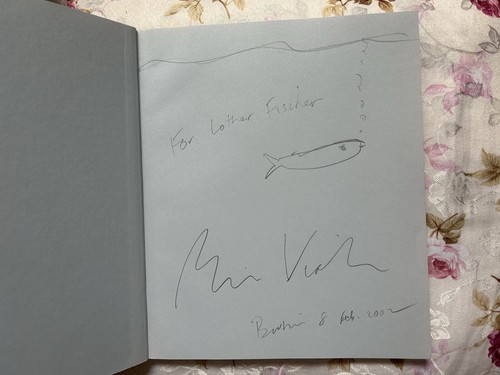 For Lothar Fischer
Bill Viola
Berlin 8 Feb. 2002